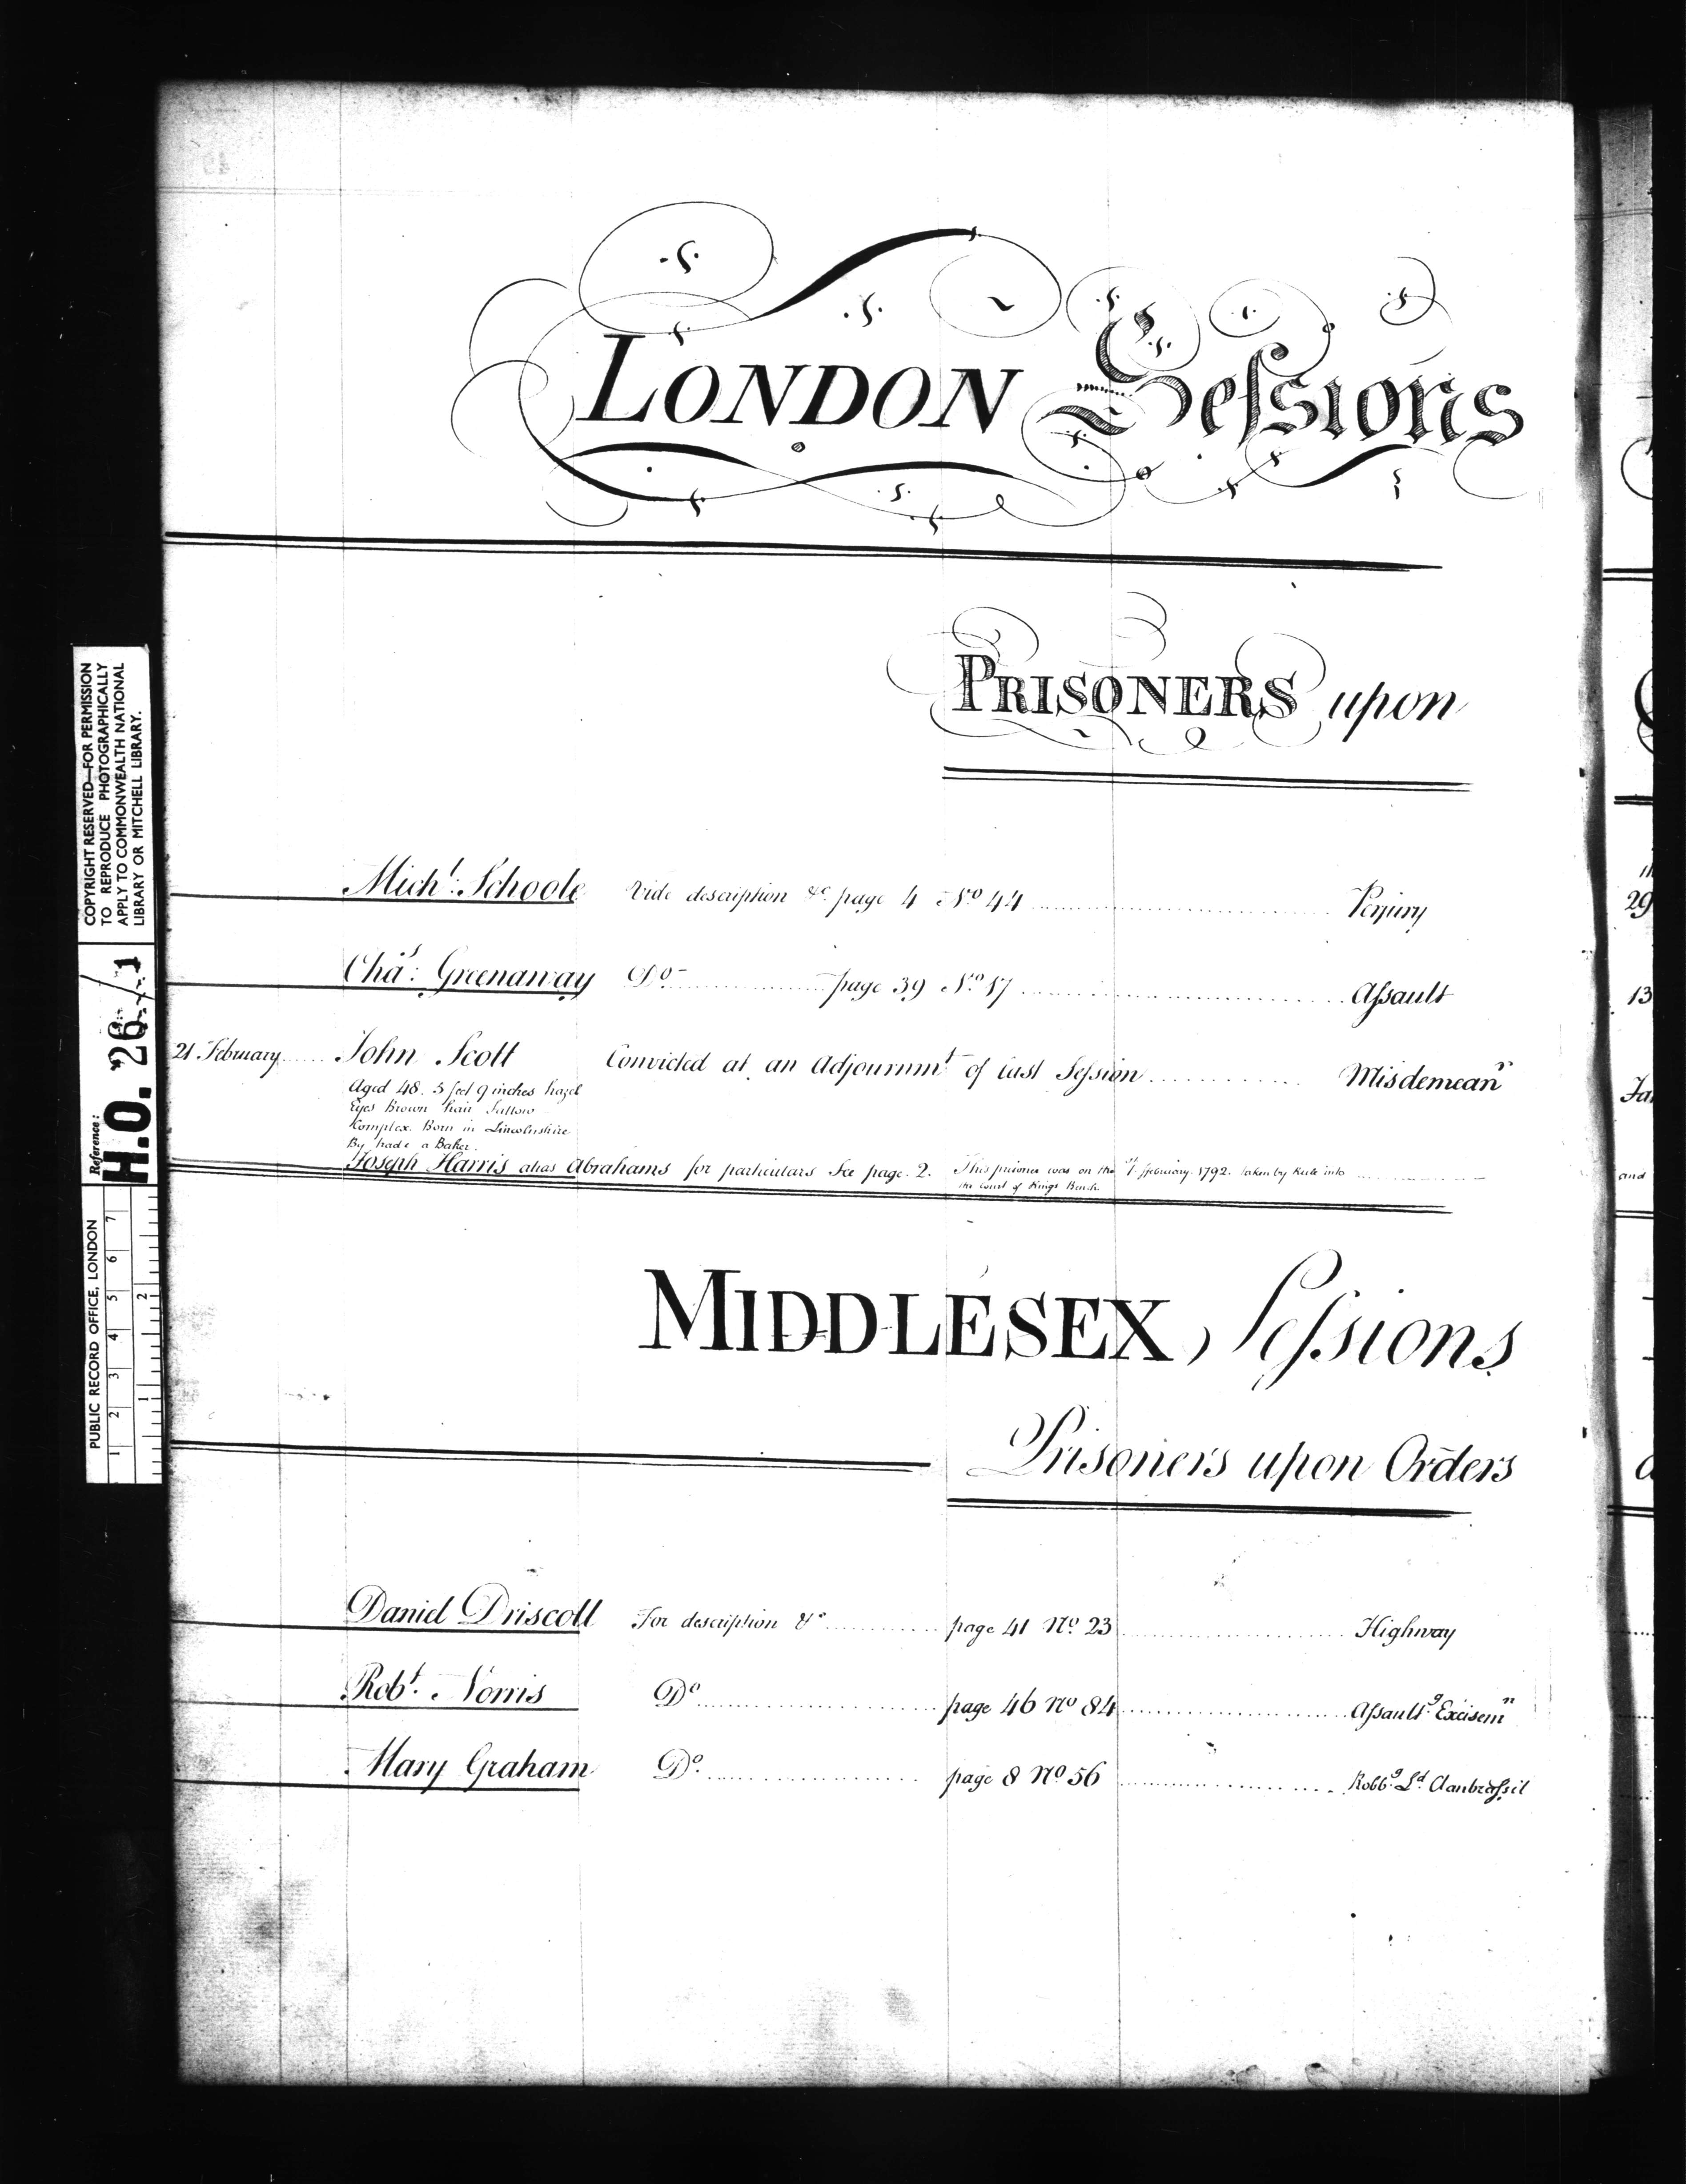 LONDON Seſsions
PRISONERS upon
Mich.l Schoole Vide description &c page 4 No 44 Perjury
Cha.s Greenaway Do page 39 No 17 Aſsault
21 February John Scott Convicted at an Adjournmt of last Seſsion Misdemean.r
Aged 48. 5 feet 9 inches hazel
Eyes Brown hair Sallow
Complex. Born in Lincolnshire
By trade a Baker.
Joseph Harris alias Abrahams for particulars See page. 2. This prisoner was on the February 1792. taken by Rule into
the Court of Kings Bench.
MIDDLESEX, Seſsions
Prisoners upon Orders
Daniel Driscoll For description &c page 41 No 23 Highway
Rob.t Norris Do page 46 No 84 Aſsault.g Excisem.n
Mary Graham Do page 8 No 56 Robb.g L.d Clanbraſsil
COPYRIGHT RESERVED—FOR PERMISSION
TO REPRODUCE PHOTOGRAPHICALLY
APPLY TO COMMONWEALTH NATIONAL
LIBRARY OR MITCHELL LIBRARY.
Reference:
H.O. 26/1
PUBLIC RECORD OFFICE, LONDON
1 2 3 4 5 6 7
1 2
29
13
and